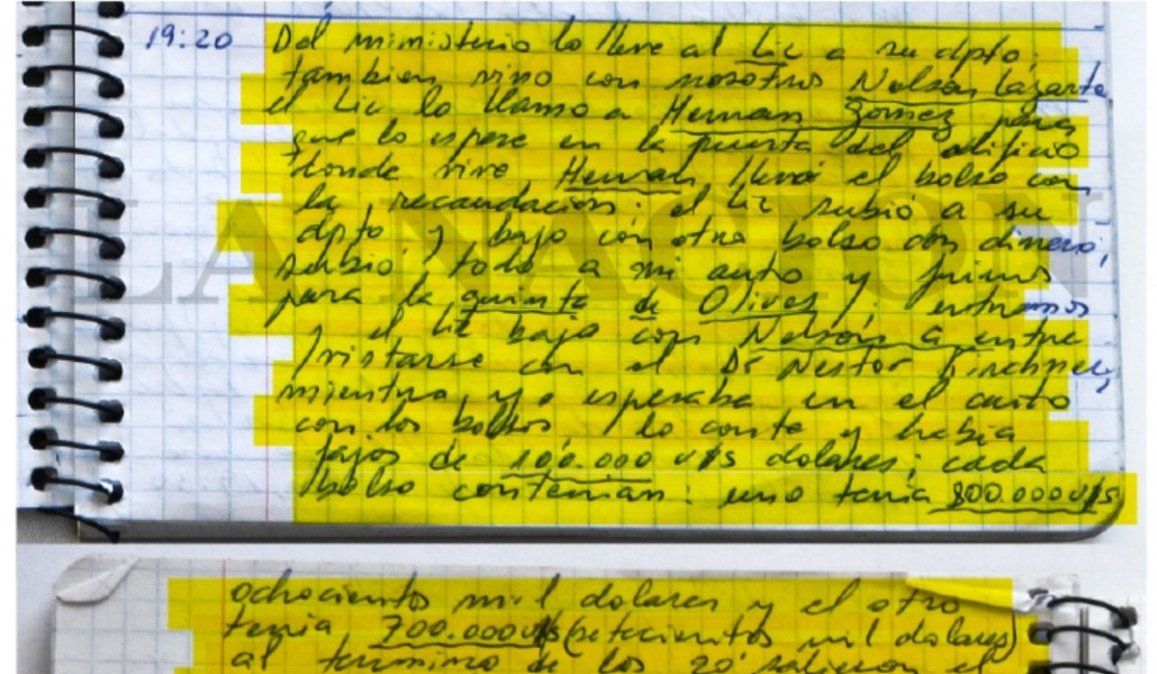 19:20 Del ministerio lo lleve al Lic a su dpto,
tambien vino con nosotros Nelson Lazarte
el Lic lo llamo a Hernan Gomez para
que lo espere en la puerta del edificio
donde vive Hernan llevó el bolso con
la recaudación; el Lic subió a su
dpto y bajo con otro bolso con dinero;
subio todo a mi auto y fuimos
para la quinta de Olivos; entramos
y el Lic bajo con Nelson a entre
vistarse con el Dr Nestor Kirchner,
mientras yo esperaba en el auto
con los bolsos, lo conte y habia
fajos de 100.000 u/s dolares; cada
bolso contenian: uno tenia 800.000 u/s
ochocientos mil dolares y el otro
tenia 700.000 u/s (setecientos mil dolares)
al termino de los 20' salieron el
LA NACION